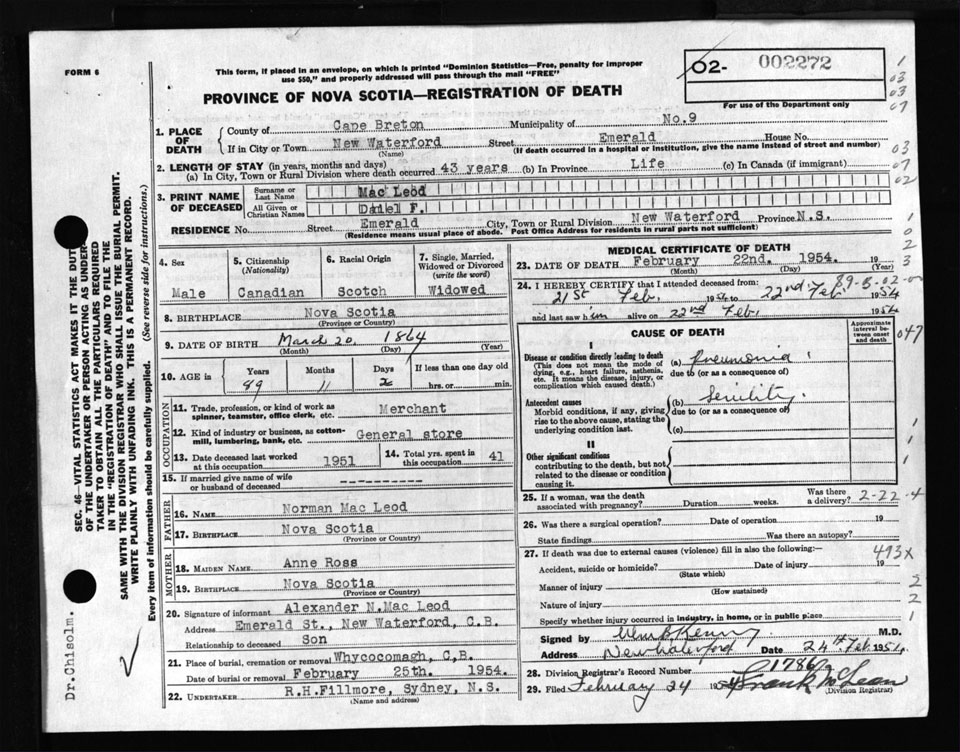 FORM 6
This form, if placed in an envelope, on which is printed "Dominion Statistics—Free, penalty for improper
use $50," and properly addressed will pass through the mail "FREE"
PROVINCE OF NOVA SCOTIA—REGISTRATION OF DEATH
02- 002272
For use of the Department only
1. PLACE OF DEATH
County of Cape Breton Municipality of No.9
If in City or Town New Waterford Street Emerald House No.
(Name) (If death occurred in a hospital or institution, give the name instead of street and number)
2. LENGTH OF STAY (in years, months and days)
(a) In City, Town or Rural Division where death occurred 43 years (b) In Province Life (c) In Canada (if immigrant)
3. PRINT NAME OF DECEASED
Surname or Last Name Mac Leod
All Given or Christian Names Daniel F.
RESIDENCE No. Street Emerald City, Town or Rural Division New Waterford Province N.S.
(Residence means usual place of abode. Post Office Address for residents in rural parts not sufficient)
4. Sex
Male
5. Citizenship (Nationality)
Canadian
6. Racial Origin
Scotch
7. Single, Married, Widowed or Divorced (write the word)
Widowed
8. BIRTHPLACE Nova Scotia
(Province or Country)
9. DATE OF BIRTH March 20, 1864
(Month) (Day) (Year)
10. AGE in Years Months Days If less than one day old
89 11 2 hrs. or min.
OCCUPATION
11. Trade, profession, or kind of work as Merchant
spinner, teamster, office clerk, etc.
12. Kind of industry or business, as cotton-
mill, lumbering, bank, etc. General store
13. Date deceased last worked
at this occupation 1951
14. Total yrs. spent in
this occupation 41
15. If married give name of wife
or husband of deceased ----------
FATHER
16. NAME Norman Mac Leod
17. BIRTHPLACE Nova Scotia
(Province or Country)
MOTHER
18. MAIDEN NAME Anne Ross
19. BIRTHPLACE Nova Scotia
(Province or Country)
20. Signature of informant Alexander N.Mac Leod
Address Emerald St., New Waterford, C.B.
Relationship to deceased Son
21. Place of burial, cremation or removal Whycocomagh, C.B.
Date of burial or removal February 25th. 1954.
22. UNDERTAKER R.H.Fillmore, Sydney, N.S.
(Name and address)
MEDICAL CERTIFICATE OF DEATH
23. DATE OF DEATH February 22nd. 1954. 19
(Month) (Day) (Year)
24. I HEREBY CERTIFY that I attended deceased from:
21st Feb. 1954 to 22nd Feb. 1954
and last saw him alive on 22nd Feb. 1954
CAUSE OF DEATH
Approximate interval between onset and death
I
Disease or condition directly leading to death
(This does not mean the mode of
dying, e.g., heart failure, asthenia,
etc. It means the disease, injury, or
complication which caused death.)
(a) Pneumonia
due to (or as a consequence of)
Antecedent causes
Morbid conditions, if any, giving
rise to the above cause, stating the
underlying condition last.
(b) Senility
due to (or as a consequence of)
(c)
II
Other significant conditions
contributing to the death, but not
related to the disease or condition
causing it.
25. If a woman, was the death
associated with pregnancy? Duration weeks. Was there a delivery? 2-22-4
26. Was there a surgical operation? Date of operation 19
State findings Was there an autopsy?
27. If death was due to external causes (violence) fill in also the following:— 493X
Accident, suicide or homicide? Date of injury 19
(State which)
Manner of injury
(How sustained)
Nature of injury
Specify whether injury occurred in industry, in home, or in public place
Signed by M.D.
Address New Waterford Date 24th Feb. 1954
28. Division Registrar's Record Number 1786
29. Filed February 24 1954 Frank McLean
(Division Registrar)
SEC. 46—VITAL STATISTICS ACT MAKES IT THE DUTY
OF THE UNDERTAKER OR PERSON ACTING AS UNDER-
TAKER TO OBTAIN ALL THE PARTICULARS REQUIRED
IN THE "REGISTRATION OF DEATH" AND TO FILE THE
SAME WITH THE DIVISION REGISTRAR WHO SHALL ISSUE THE BURIAL PERMIT.
WRITE PLAINLY WITH UNFADING INK. THIS IS A PERMANENT RECORD.
Every item of information should be carefully supplied. (See reverse side for instructions.)
Dr.Chisolm.
1
03
03
07
03
07
02
1
0
2
3
047
1
1
1
2
2
1